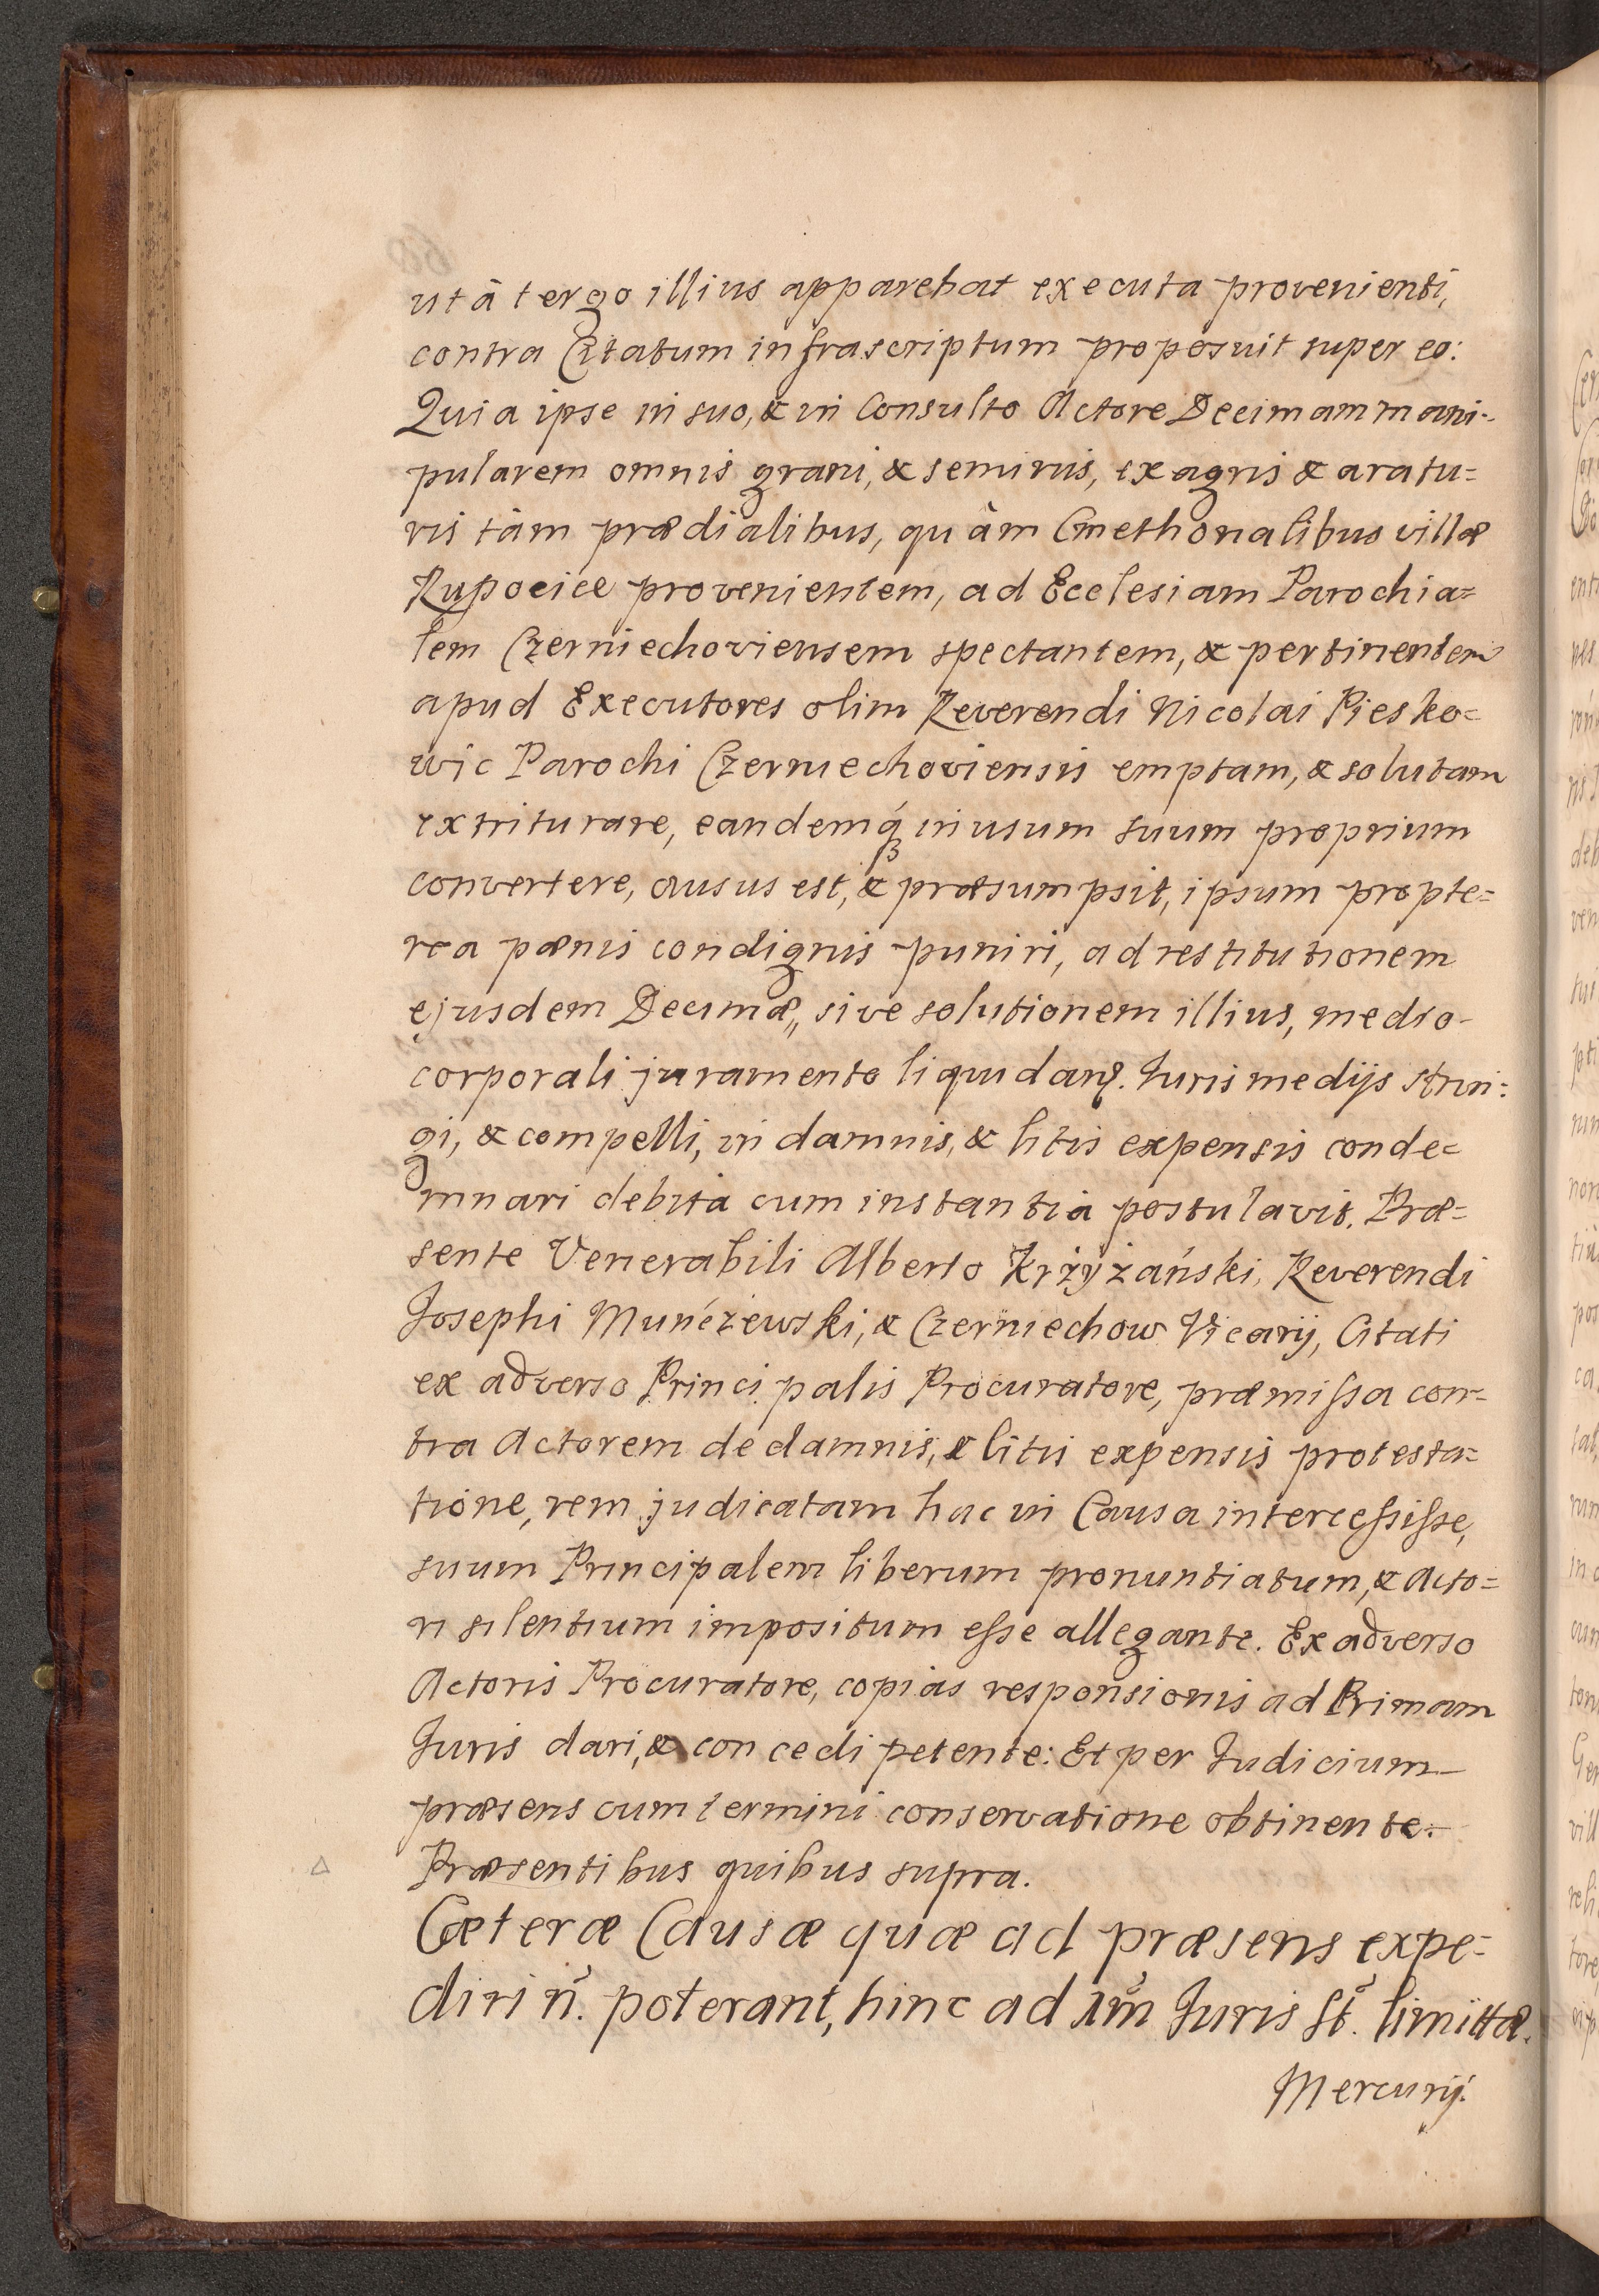 ut à tergo illius apparebat executa provenienti,
contra Citatum infrascriptum proposuit super eo:
Quia ipse in suo, & in Consulto Actore Decimam mani-
pularem omnis grani, & seminis, ex agris & aratu=
ris tàm prædialibus, quàm Cmethonalibus villæ
Rupocice provenientem, ad Ecclesiam Parochia=
lem Czerniechoviensem spectantem, & pertinentem
apud Executores olim Reverendi Nicolai Piesko=
wic Parochi Czerniechoviensis emptam, & solutam
extriturare, eandemq3 in usum suum proprium
convertere, ausus est, & præsumpsit, ipsum propte=
rea pænis condignis puniri, ad restitutionem
ejusdem Decimæ, sive solutionem illius, medio
corporali juramento liquidan. Juris medijs strin=
gi, & compelli, in damnis, & litis expensis conde=
mnari debita cum instantia postulavit. Præ=
sente Venerabili Alberto Krżyżański, Reverendi
Josephi Munćżewski, & Czerniechow Vicarij, Citati
ex adverso Principalis Procuratore, præmissa con=
tra Actorem de damnis, & litis expensis protesta=
tione, rem judicatam hac in Causa intercessisse,
suum Principalem liberum pronuntiatum, & Acto=
ri silentium impositum esse allegante. Ex adverso
Actoris Procuratore, copias responsionis ad Primam
Juris dari, & concedi petente: Et per Judicium
præsens cum termini conservatione obtinente.
Præsentibus quibus supra.
Cæteræ Causæ quæ ad præsens expe=
diri ñ. poterant, hinc ad 1m̃ Juris st̃. limittæ.
Mercurij.
60